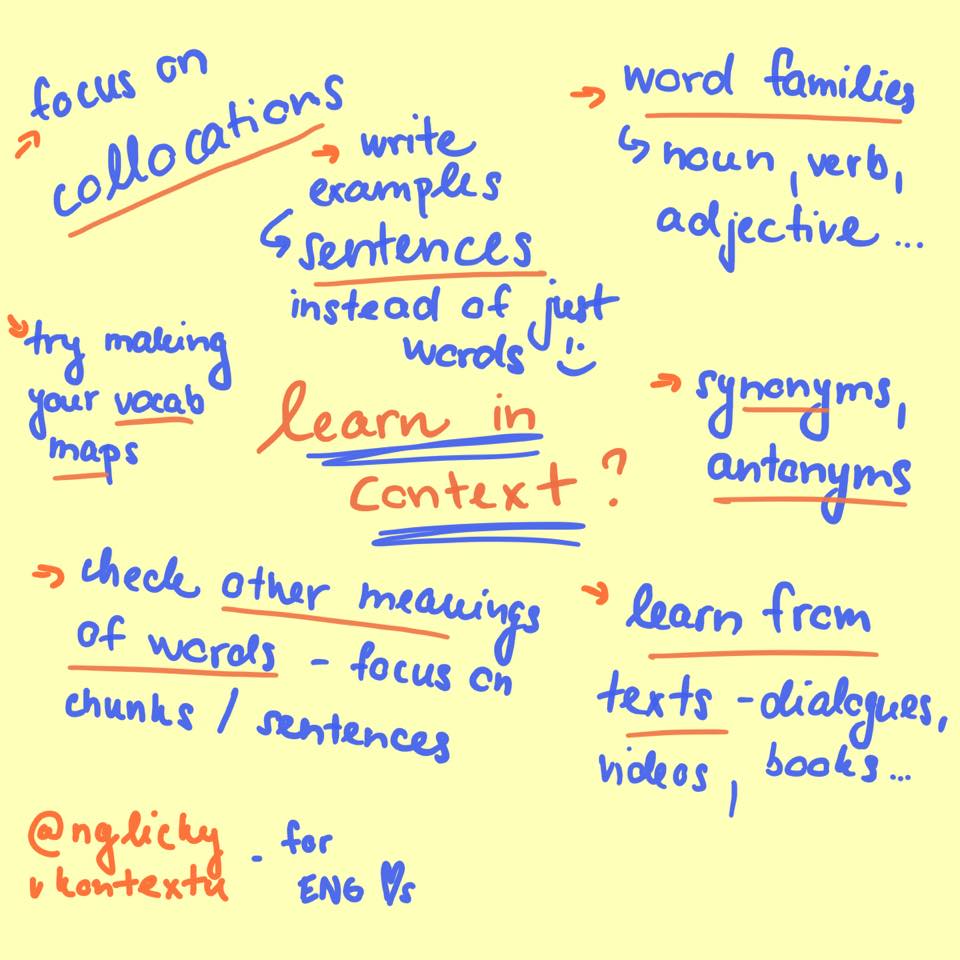 focus on
collocations
write
examples
sentences
instead of just
words :)
word families
noun, verb,
adjective...
try making
your vocab
maps
learn in
context?
synonyms,
antonyms
check other meanings
of words - focus on
chunks / sentences
learn from
texts - dialogues,
videos, books...
@nglicky
v kontextu
- for
ENG ♥s